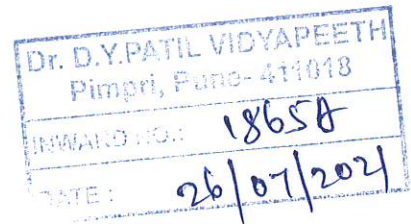 Dr. D.Y.PATIL VIDYAPEETH
Pimpri, Pune- 411018
INWARD NO.: 1865A
DATE: 26/07/2021